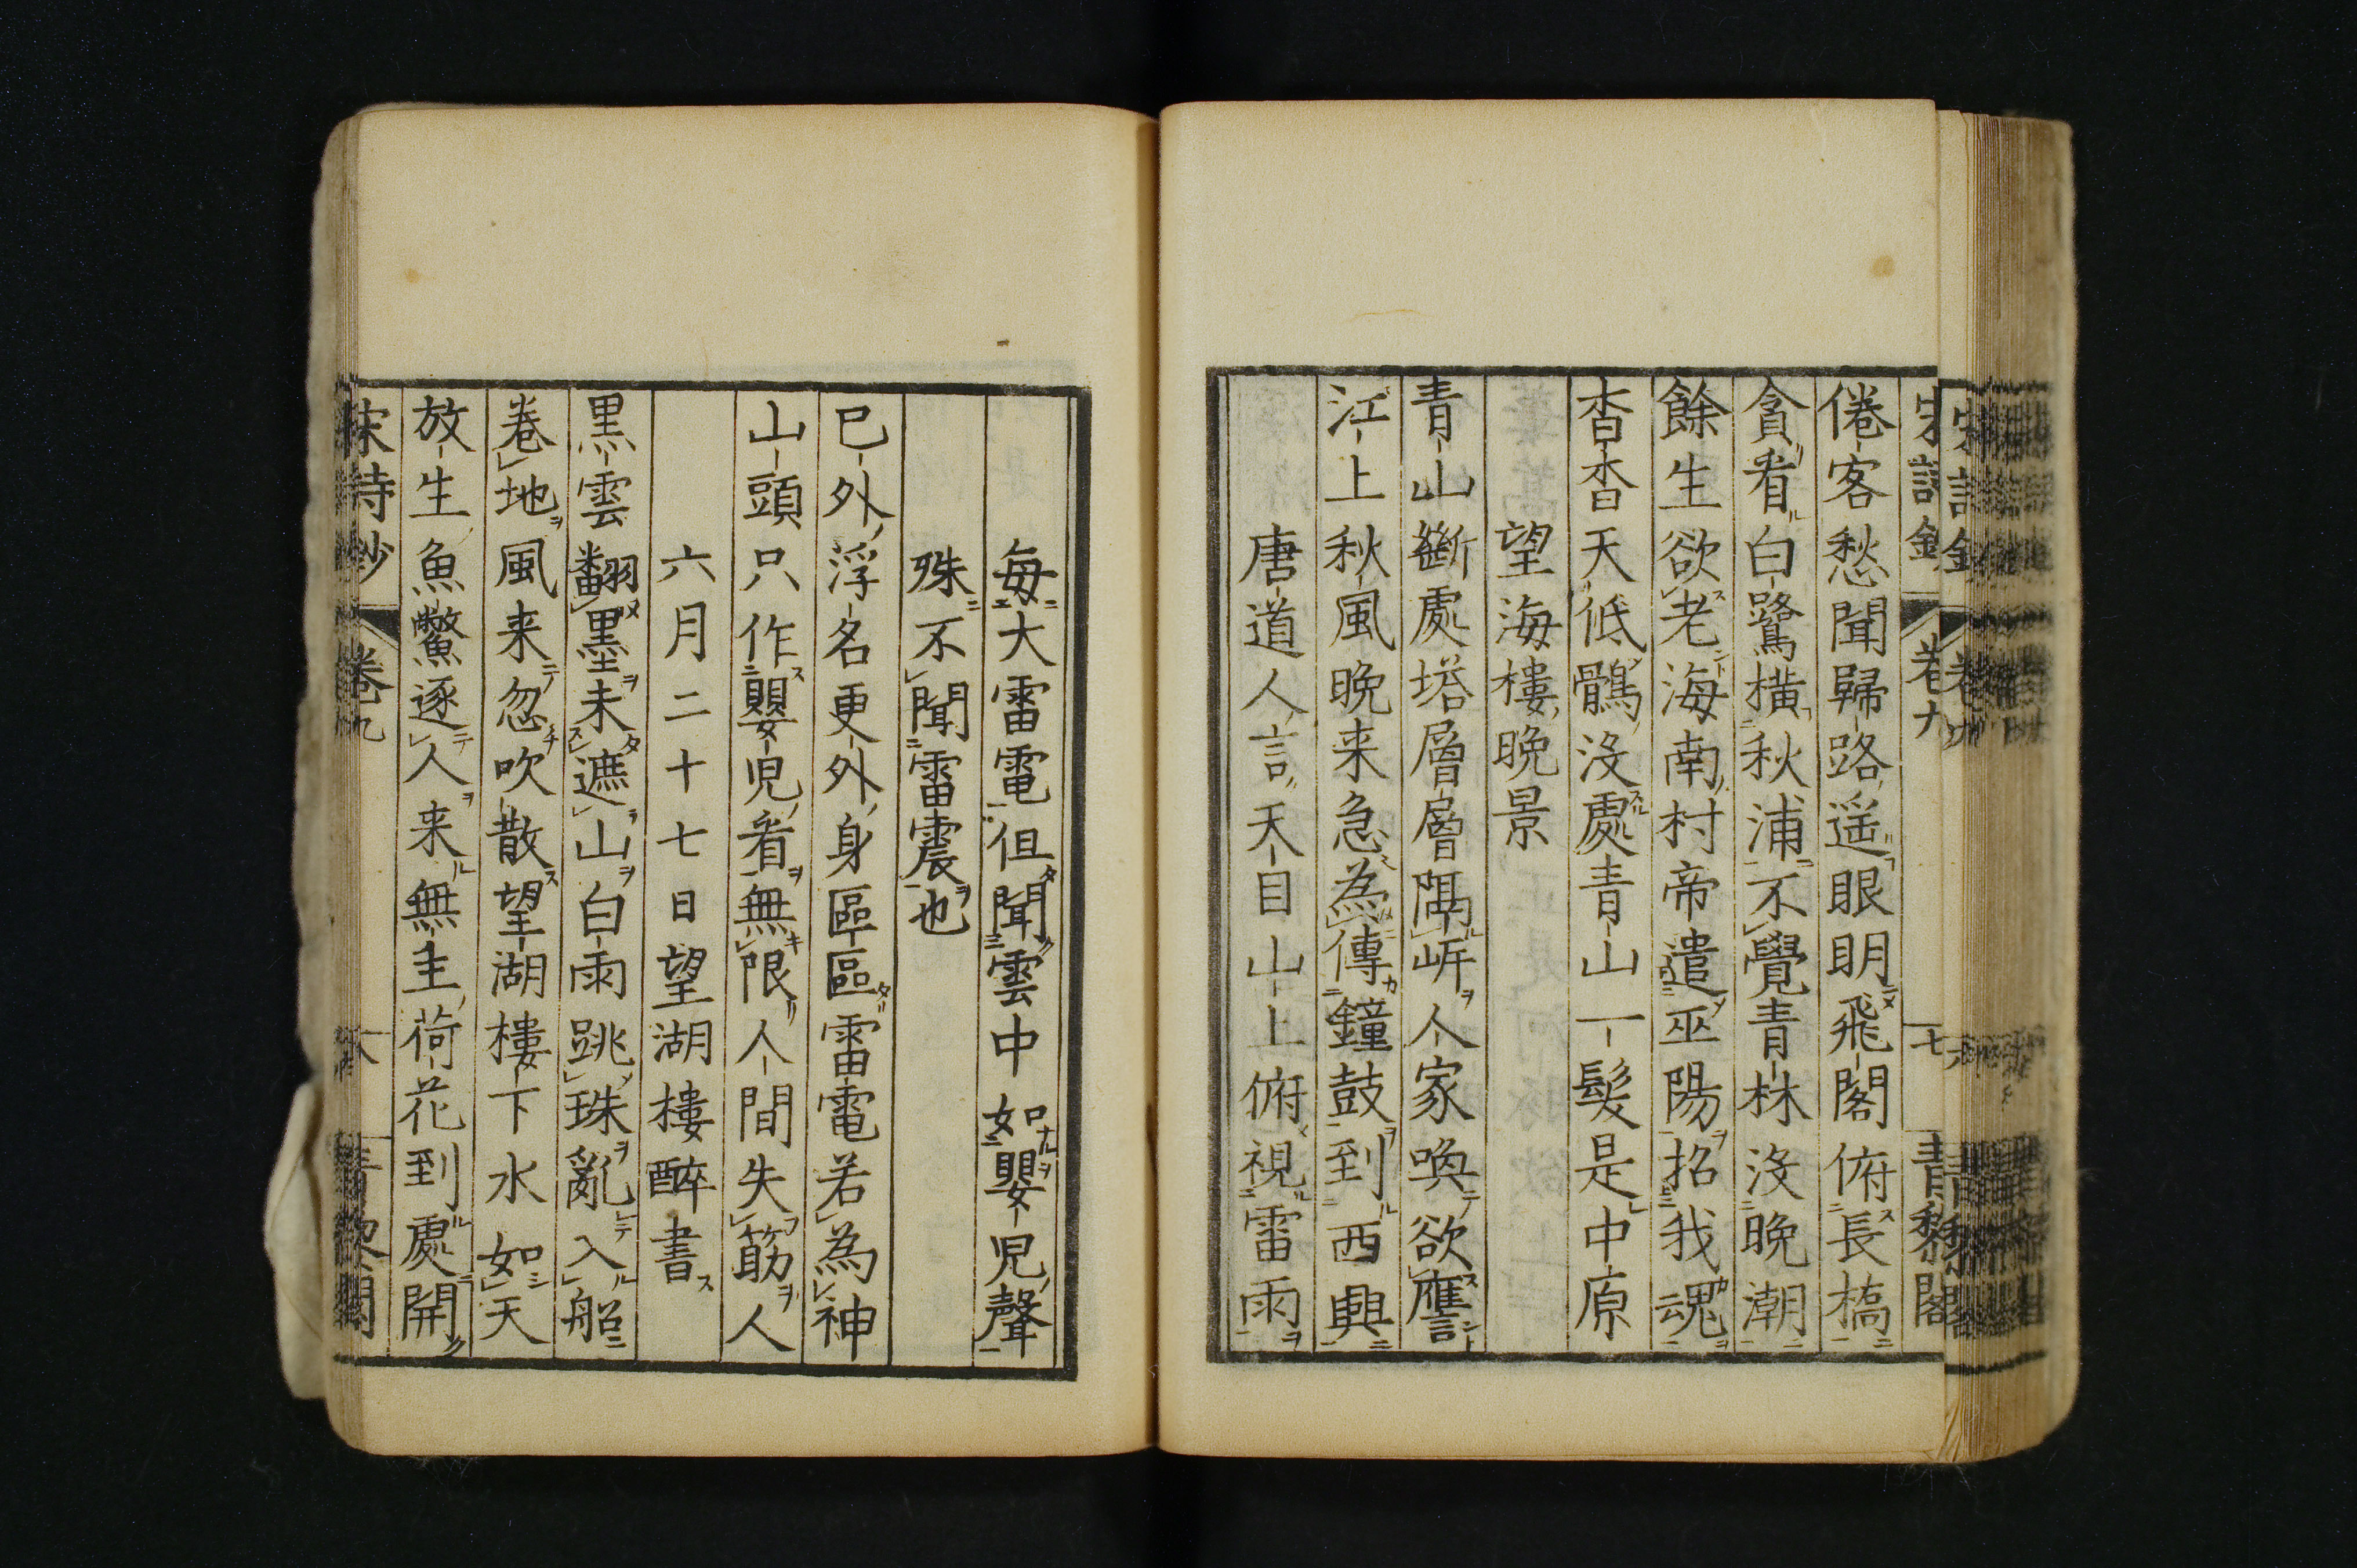 倦客愁聞歸路遥眼明飛閣俯長橋
貪看白鷺橫秋浦不覺青林沒晚潮
餘生欲老海南村帝遣巫陽招我魂
杳杳天低鶻沒處青山一髮是中原
望海樓晚景
青山斷處塔層層隔岸人家喚欲譍
江上秋風晚来急為傳鐘鼓到西興
唐道人言天目山上俯視雷雨
每大雷電但聞雲中如嬰児聲
殊不聞雷震也
已外浮名更外身區區雷電若為神
山頭只作嬰児看無限人間失筯人
六月二十七日望湖樓醉書
黒雲翻墨未遮山白雨跳珠亂入船
卷地風来忽吹散望湖樓下水如天
放生魚鱉逐人来無主荷花到處開
宋詩鈔 卷九